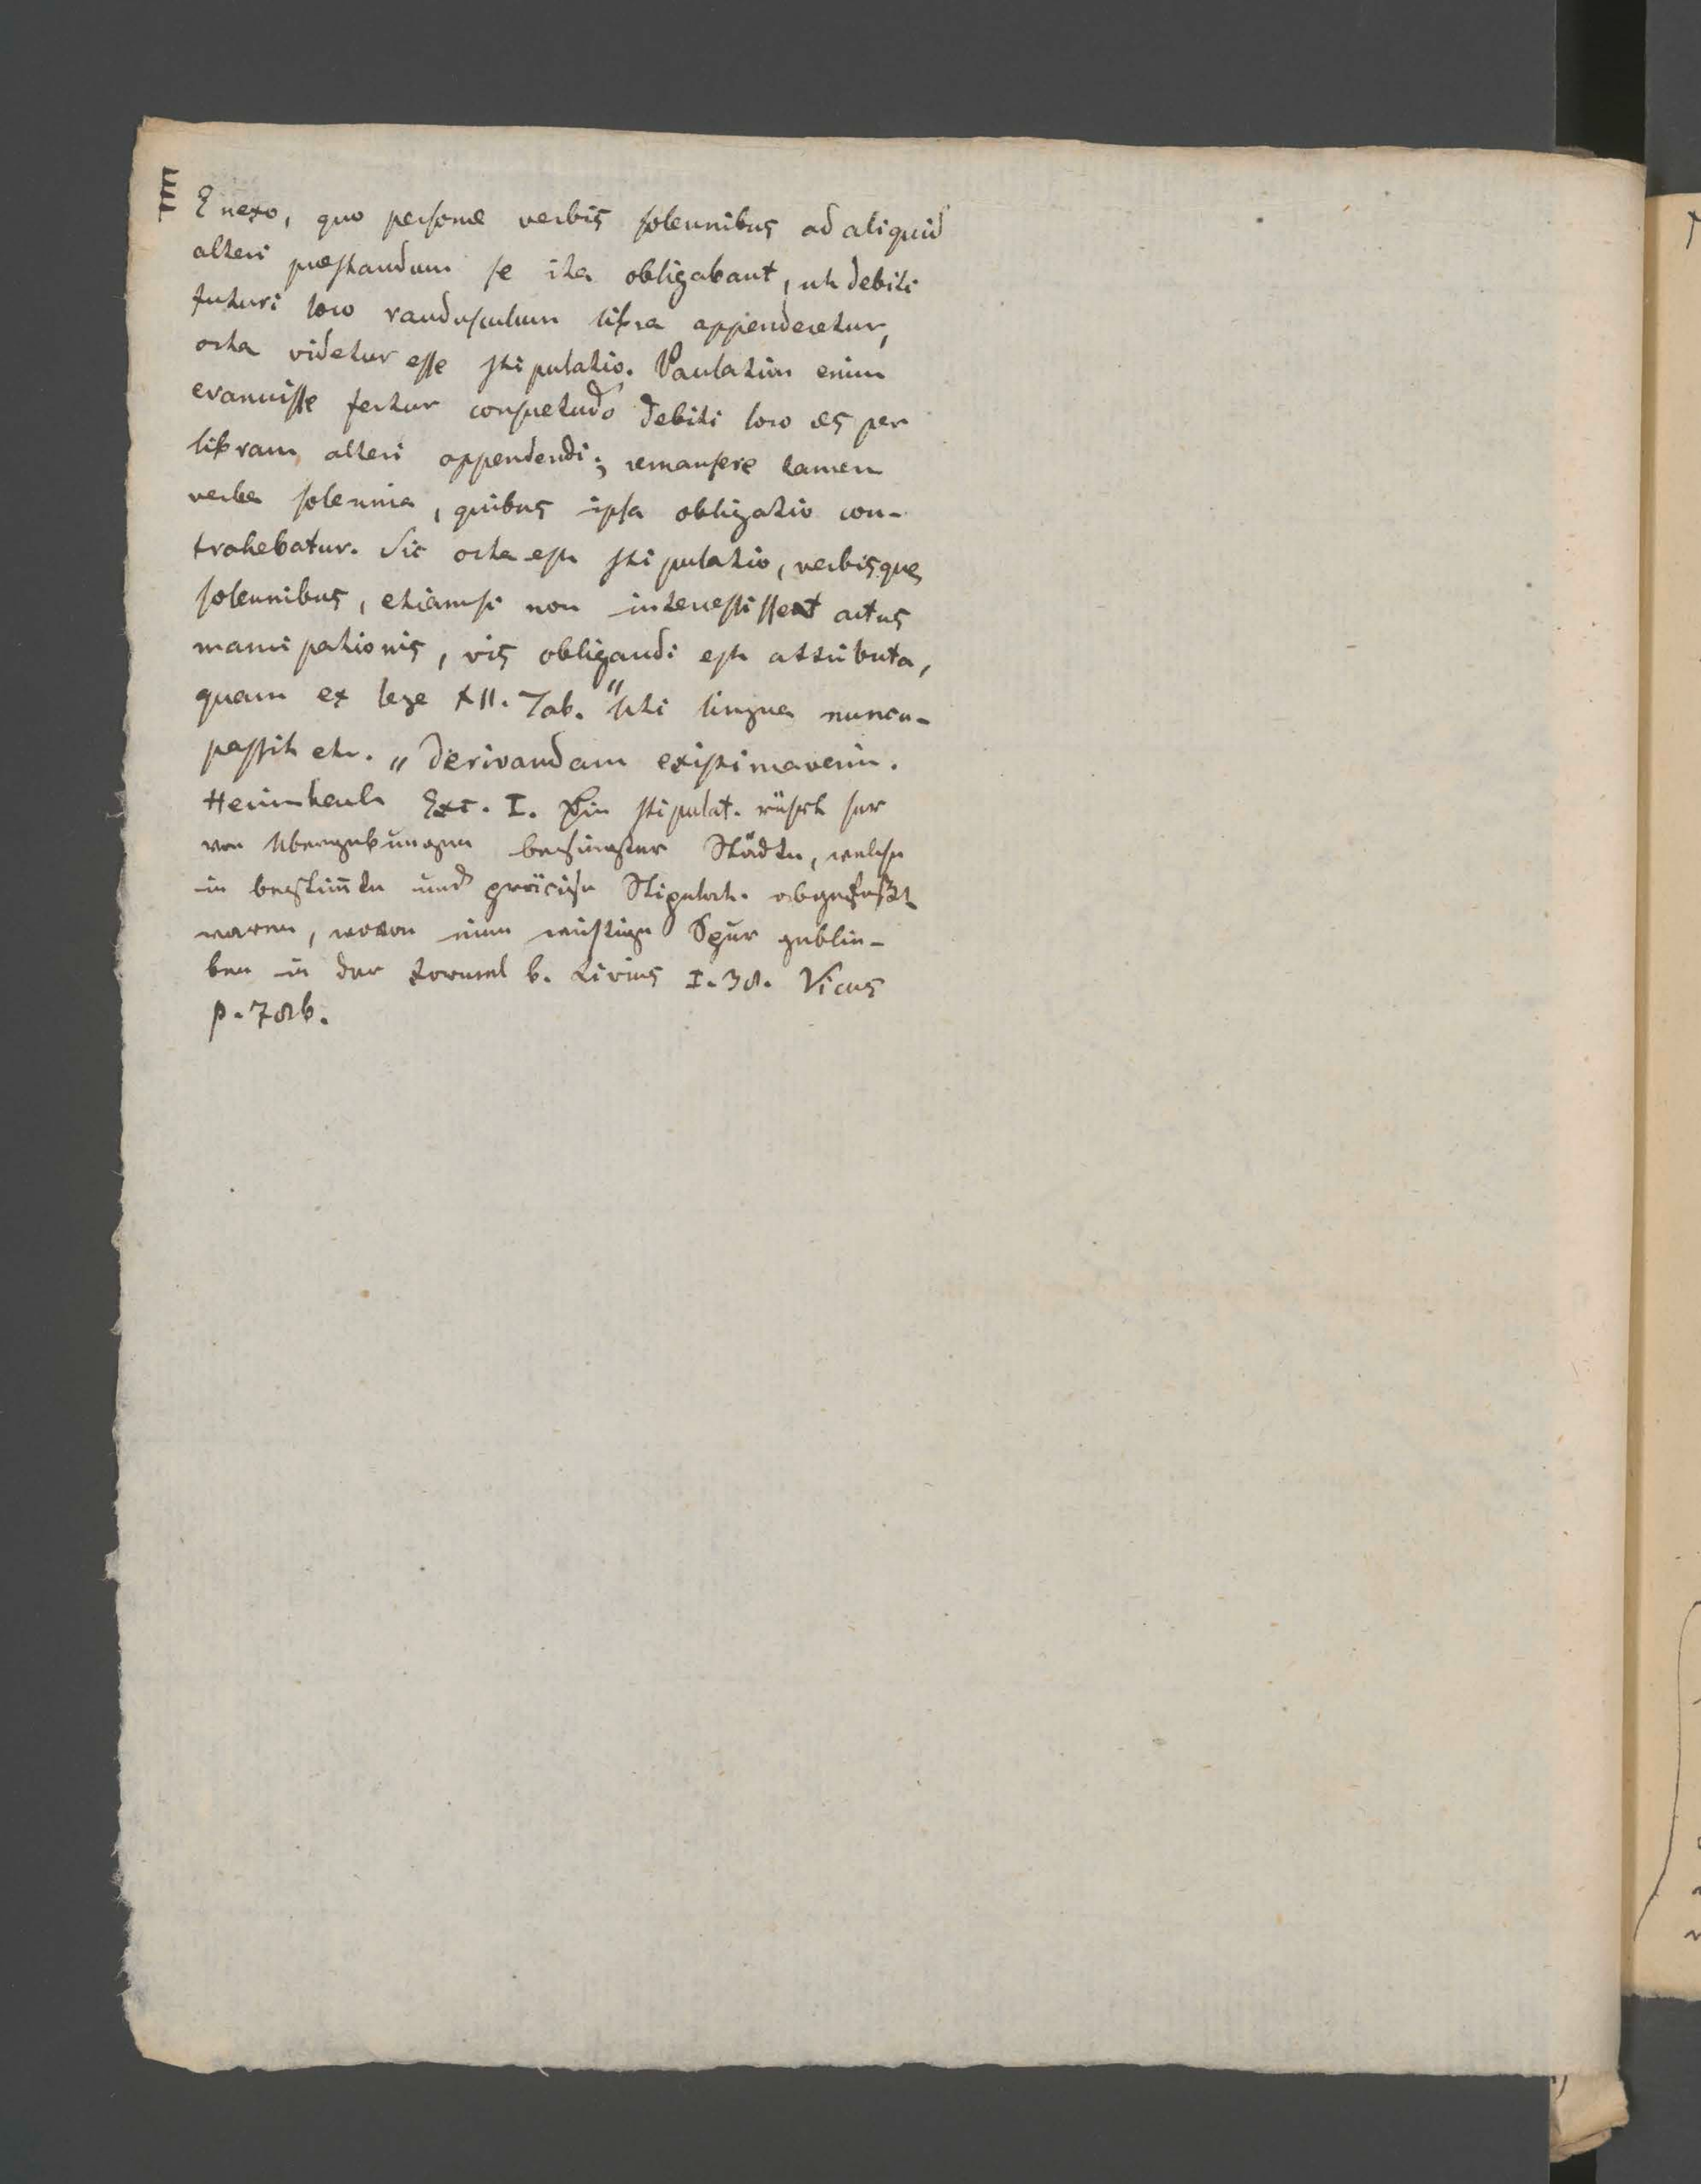 E nexo, quo personæ verbis solennibus ad aliquid
alteri præstandum se ita obligabant, ut debiti
futuri loco raudusculum libra appenderetur,
orta videtur esse stipulatio. Paulatim enim
evanuisse fertur consuetudo debiti loco æs per
libram alteri appendendi; remansere tamen
verba solennia, quibus ipsa obligatio con-
trahebatur. Sic orta est stipulatio, verbisque
solennibus, etiamsi non intercessissent actus
mancipationis, vis obligandi est attributa,
quam ex lege XII. Tab. "Uti lingua nuncu-
passit etc. „ derivandam existimaverim.
Heimbach Exc. I. Die stipulat. rührt her
von Übergebungen besiegter Städte, welche
in bestim̄te und präcise Stipulat. abgefaßt
waren, wovon eine wichtige Spur geblie-
ben in der Formel b. Livius I. 38. Vicus
p. 78b.